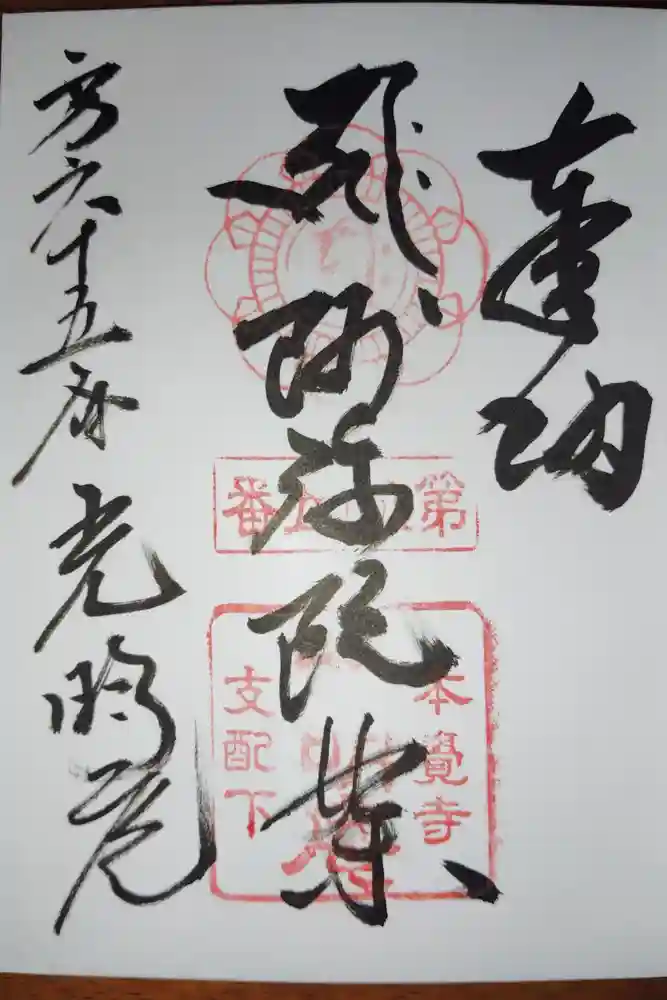 奉納
阿弥陀如来
第六十五番 光明庵
第六十五番
本覺寺
支配下